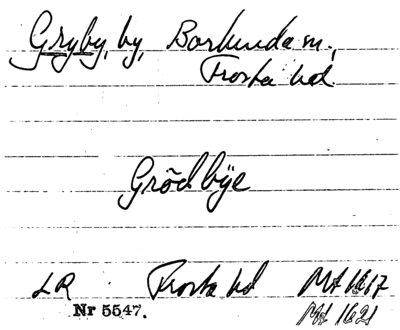 Gryby, by, Borlunda sn.,
Frosta hd.
Grödbÿe
LR Frosta hd Mt 1617
Nr 5547. Mt 1621